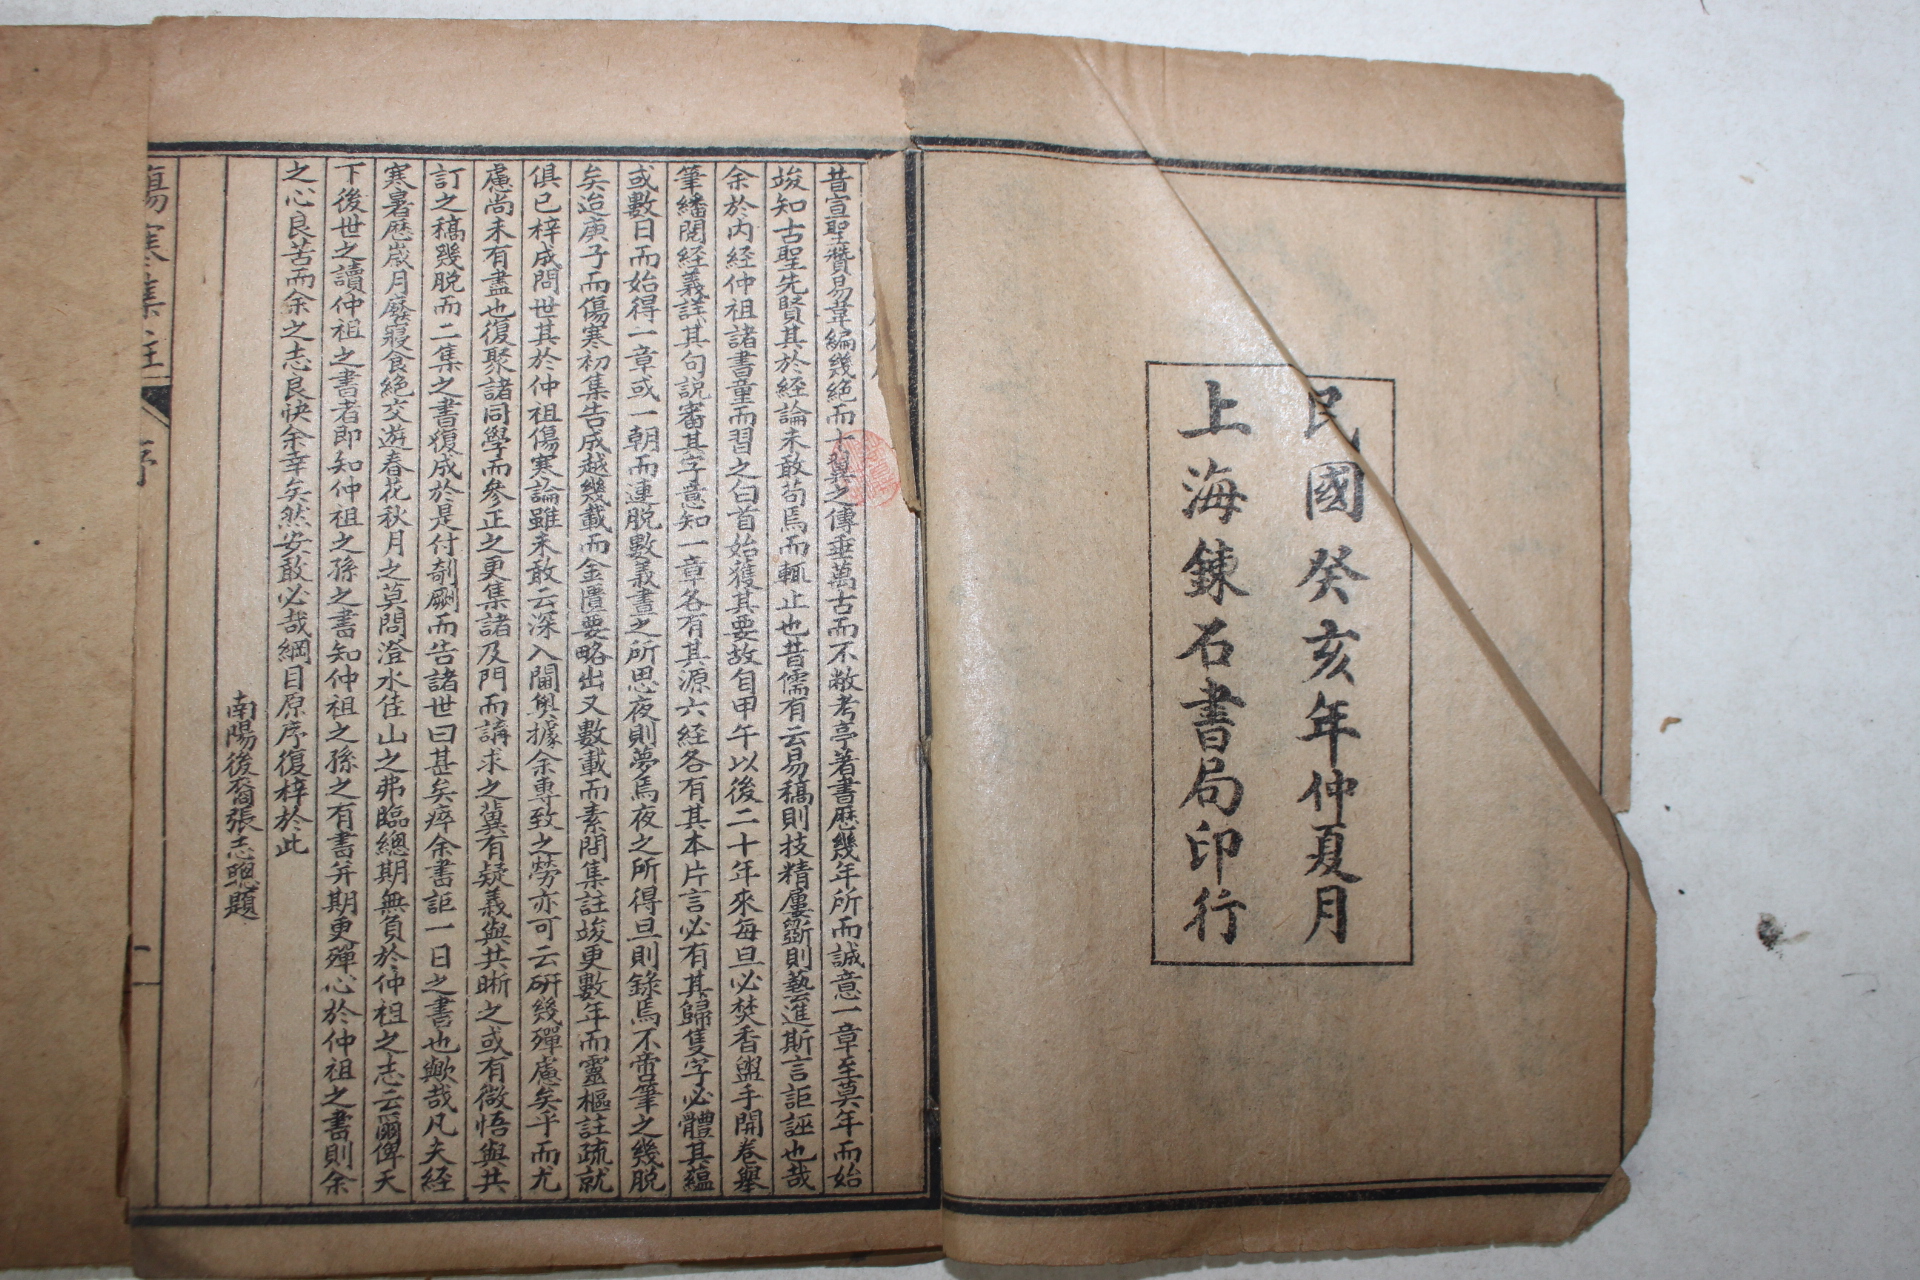 民國癸亥年仲夏月
上海錬石書局印行
昔宣聖贊易韋編幾絶而十翼之傳垂萬古而不敝考亭著書歷幾年所而誠意一章至莫年而始
竣知古聖先賢其於経論未敢苟焉而輒止也昔儒有云易稿則技精屢斵則藝進斯言詎誣也哉
余於内経仲祖諸書童而習之白首始獲其要故自甲午以後二十年來每旦必焚香盥手開卷舉
筆繙閱経義詳其句說審其字意知一章各有其源六経各有其本片言必有其歸隻字必體其蘊
或數日而始得一章或一朝而連脱數義晝之所思夜則夢焉夜之所得旦則錄焉不啻筆之幾脱
矣迨庚子而傷寒初集告成越幾載而金匱要略出又數載而素問集註竣更數年而靈樞註疏就
俱已梓成問世其於仲祖傷寒論雖未敢云深入閫奧據余專致之勞亦可云研幾殫慮矣乎而尤
慮尚未有盡也復聚諸同學而參正之更集諸及門而講求之冀有疑義與共晰之或有微悟與共
訂之稿幾脱而二集之書復成於是付剞劂而告諸世曰甚矣瘁余書詎一日之書也歟哉凡夫経
寒暑歷歲月廢寢食絶交遊春花秋月之莫問澄水佳山之弗臨總期無負於仲祖之志云爾俾天
下後世之讀仲祖之書者即知仲祖之孫之書知仲祖之孫之有書并期更殫心於仲祖之書則余
之心良苦而余之志良快余幸矣然安敢必哉綱目原序復梓於此
南陽後裔張志聰題
傷寒集註
序
一